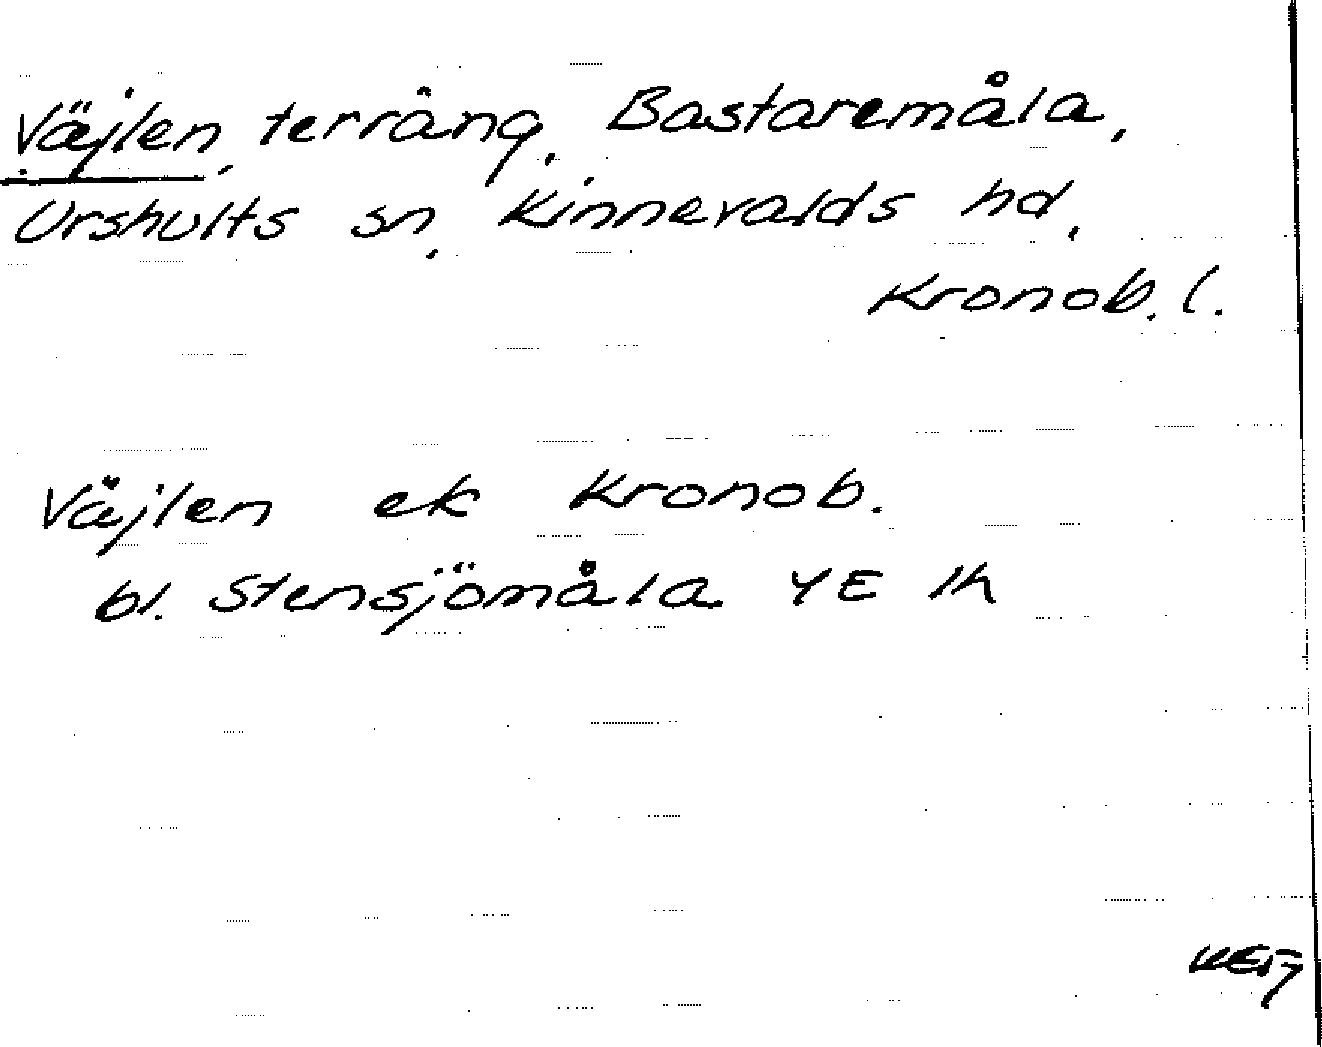 Väjlen, terräng, Bastaremåla,
Urshults sn, Kinnevalds hd,
Kronob. l.
Väjlen ek Kronob.
bl. Stensjömåla 4E 1h